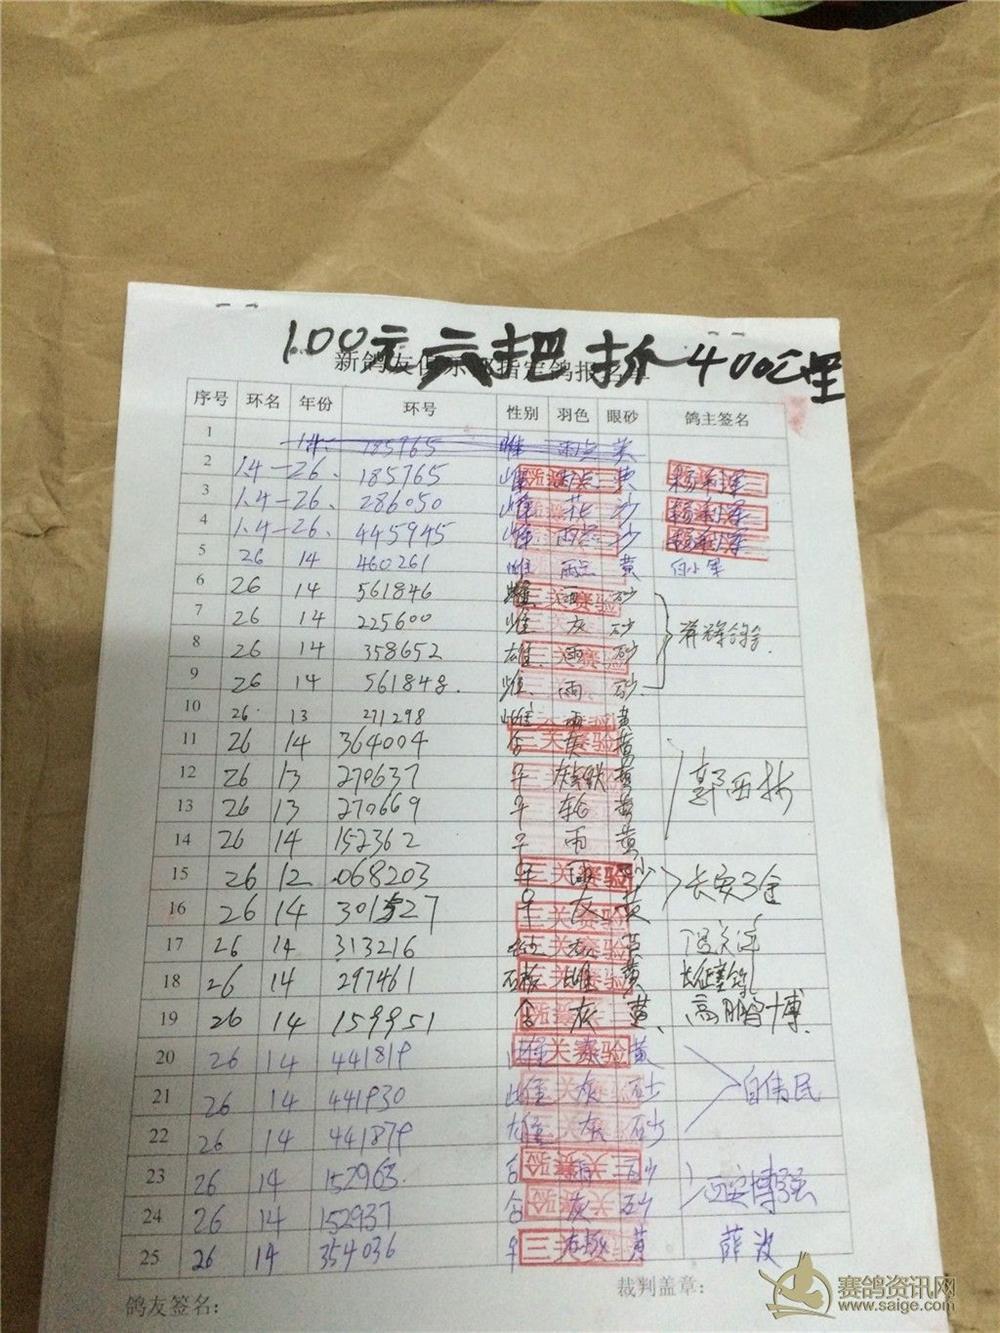 100元六把 扒 400公里
新鸽友俱乐部指定鸽报名单
序号 环名 年份 环号 性别 羽色 眼砂 鸽主签名
1 14 185765 雌 雨点 黄
2 14-26. 185765 雌 雨点 黄
3 14-26. 286050 雌 花 沙
4 14-26. 445945 雌 雨点 沙
5 26 14 460261 雌 雨点 黄 白小军
6 26 14 561846 雌 雨 砂
7 26 14 225600 雌 灰 砂
8 26 14 358652 雄 雨 砂
9 26 14 561848. 雌 雨 砂
10 26 13 271298 雌 雨 黄
11 26 14 364004 合 灰 黄
12 26 13 270637 平 黄
13 26 13 270669 平 轮 黄 郭西林
14 26 14 152362 平 雨 黄
15 26 12 068203 平 雨 沙
16 26 14 301527 平 灰 黄
17 26 14 313216
18 26 14 297461 石板 雌 黄
19 26 14 159951 合 灰 黄
20 26 14 441819 雌 黄
21 26 14 441930 雌 灰 砂 白伟民
22 26 14 441879 雄 灰 砂
23 26 14 152963. 合 砂
24 26 14 152937 合 灰 砂
25 26 14 354036 平 黄 薛波
三关赛验
鸽友签名：
裁判盖章：
赛鸽资讯网
www.saige.com